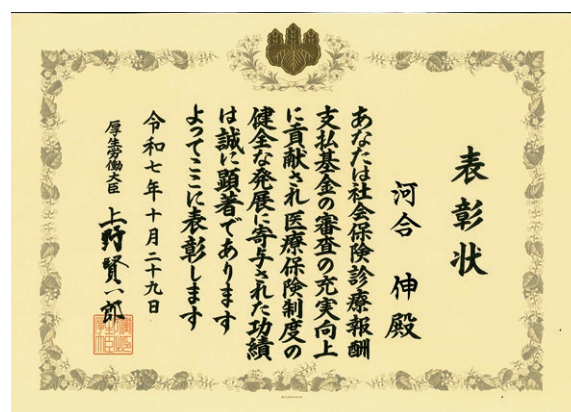 表彰状
河合 伸 殿
あなたは社会保険診療報酬
支払基金の審査の充実向上
に貢献され医療保険制度の
健全な発展に寄与された功績
は誠に顕著であります
よってここに表彰します
令和七年十月二十九日
厚生労働大臣 上野賢一郎